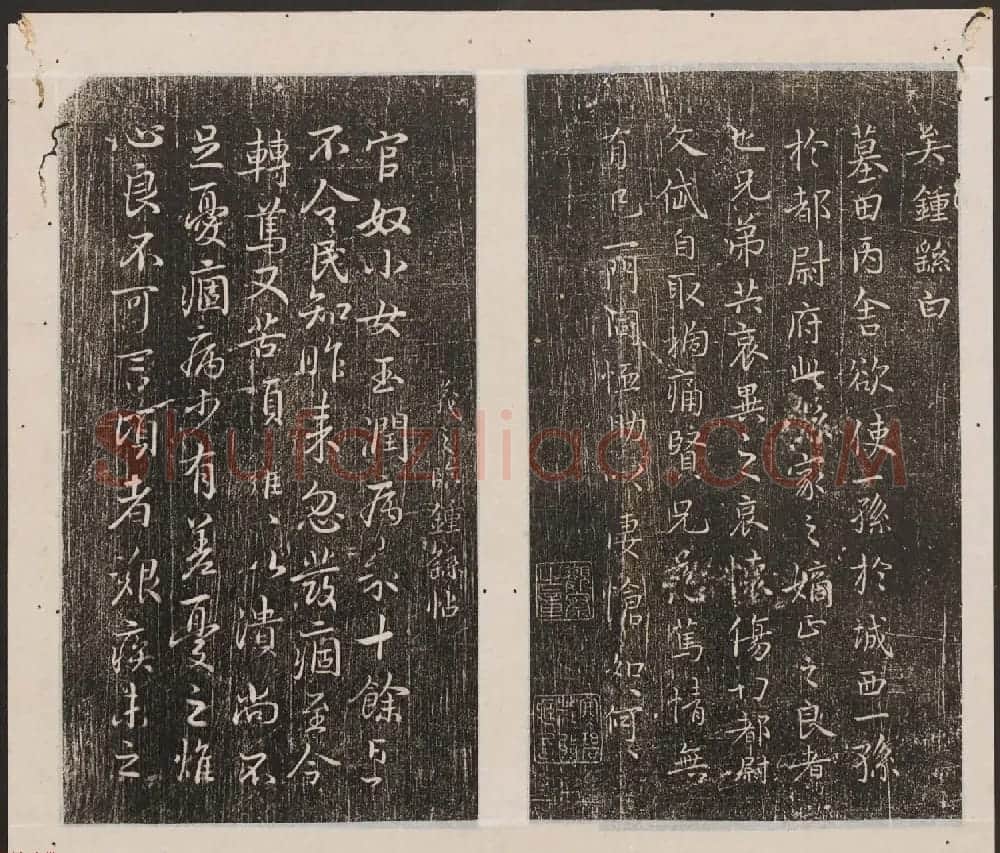 矣鍾繇白
墓田丙舍欲使一孫於城西一孫
於都尉府此繇家之嫡正之良者
也兄弟共哀異之哀懷傷切都尉
文岱自取禍痛賢兄慈篤情無
有已一門同恤助以悽愴如〻何〻
羲之臨鍾繇帖
官奴小女玉潤病來十餘日了
不令民知昨來忽發痼至今
轉篤又苦頭癰〻以潰尚不
足憂痼病少有差憂之燋
心良不可言頃者艱疾未之
Shufaziliao.COM